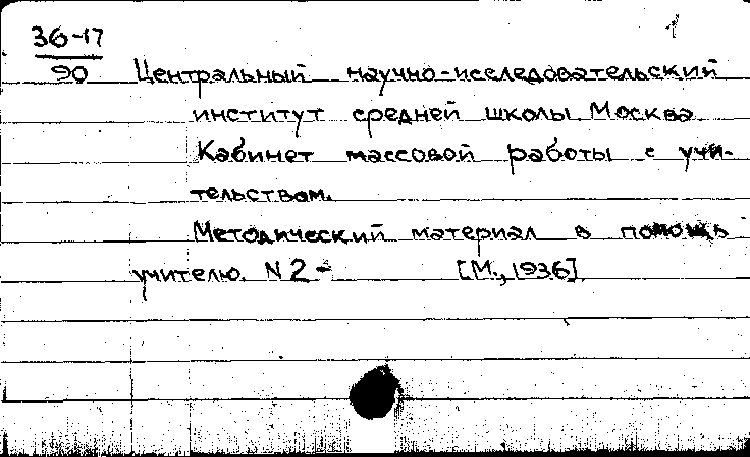 1
36-17
90
Центральный научно-исследовательский
институт средней школы. Москва.
Кабинет массовой работы с учи-
тельством.
Методический материал в помощь
учителю. N 2- [М., 1936].